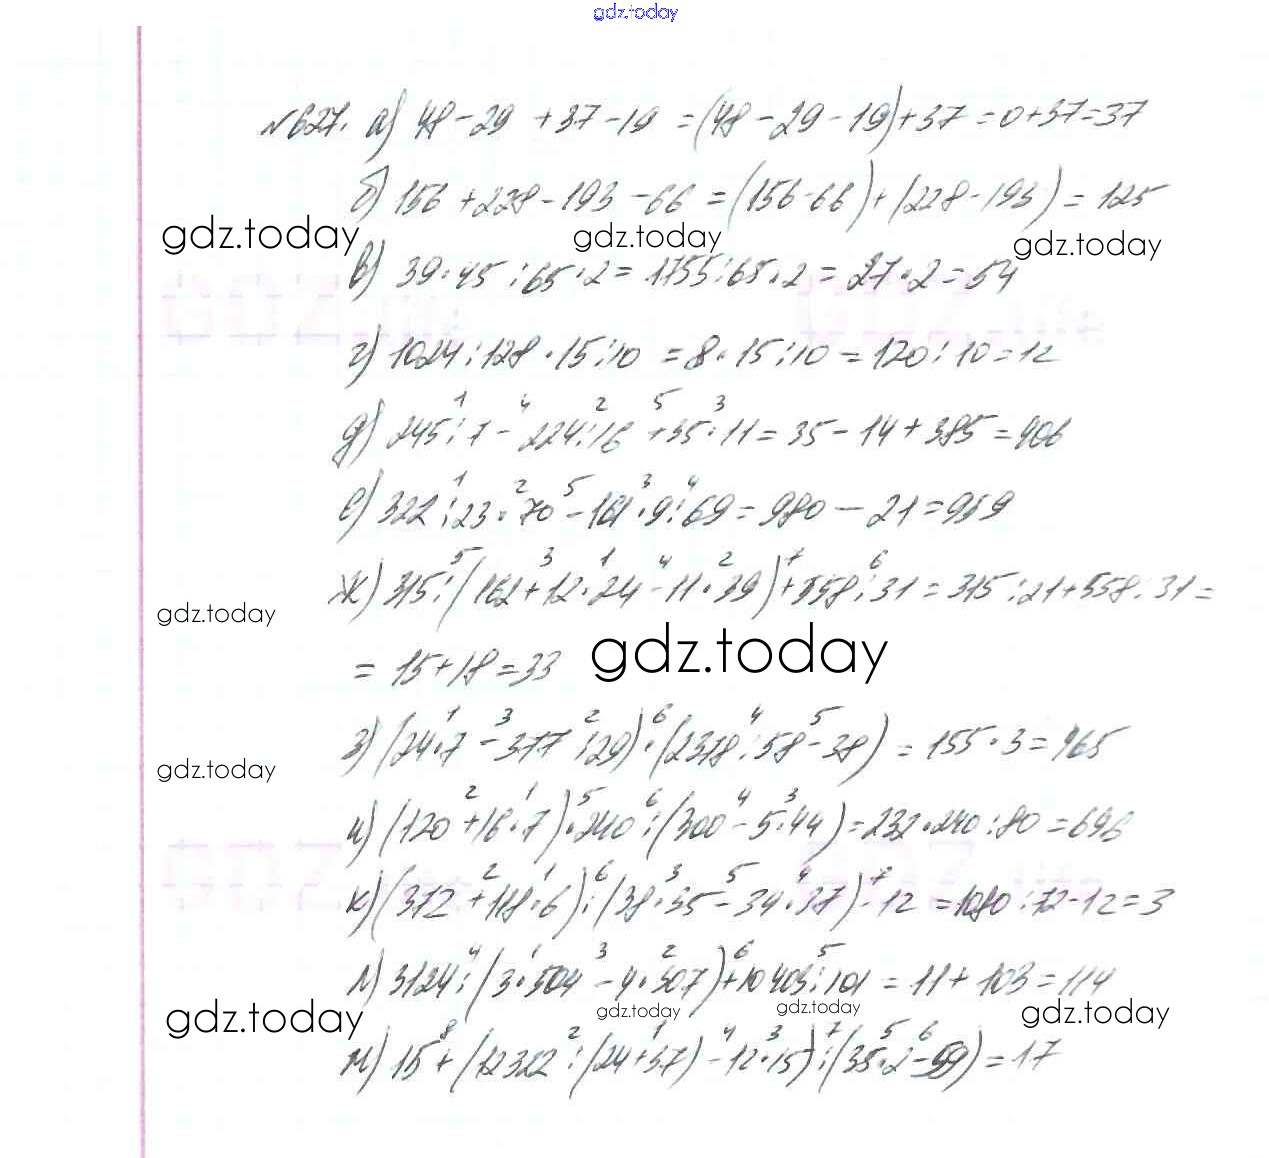 gdz.today
№627. а) 48-29 +37-19 =(48-29-19)+37 =0+37=37
б) 156 +228-193 -66 =(156-66)+(228-193)=125
gdz.today gdz.today gdz.today
в) 39·45:65·2=1755:65·2=27·2=54
г) 1024:128·15:10 =8·15:10=120:10=12
1 4 2 5 3
д) 245:7-224:16 +35·11=35-14+385=406
1 2 5 3 4
е) 322:23·70-161·9:69=980-21=959
5 3 1 4 2 7 6
ж) 315:(162+12·24-11·39)+558:31=315:21+558:31=
gdz.today
= 15+18=33
gdz.today
1 3 2 6 4 5
з) (24·7-377:29)·(2378:58-38)=155·3=465
gdz.today
2 1 5 6 4 3
и) (120+16·7)·240:(300-5·44)=232·240:80=696
2 1 6 3 5 4 7
к) (372+118·6):(38·35-34·37)-12=1080:72-12=3
4 1 3 2 6 5
л) 3124:(3·504-4·307)+10403:101=11+103=114
gdz.today gdz.today gdz.today gdz.today
8 2 1 4 3 7 5 6
м) 15+(12322:(24+37)-12·15):(35·2-59)=17
gdz.today